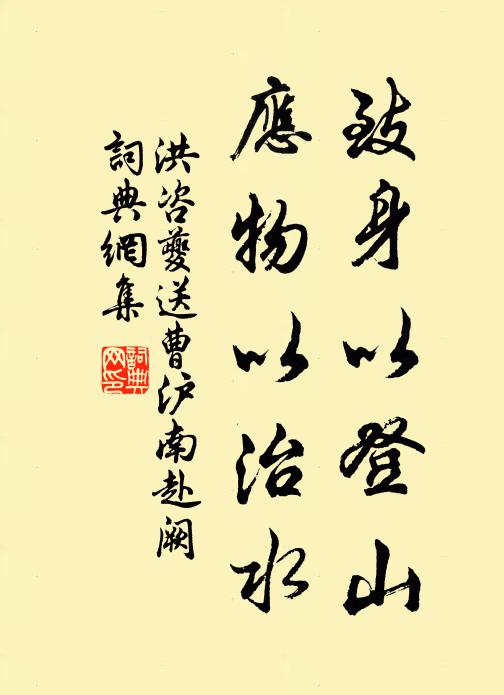 致身以登山
應物以治水
洪咨夔送曹沪南赴阙
詞典網集
詞典网印